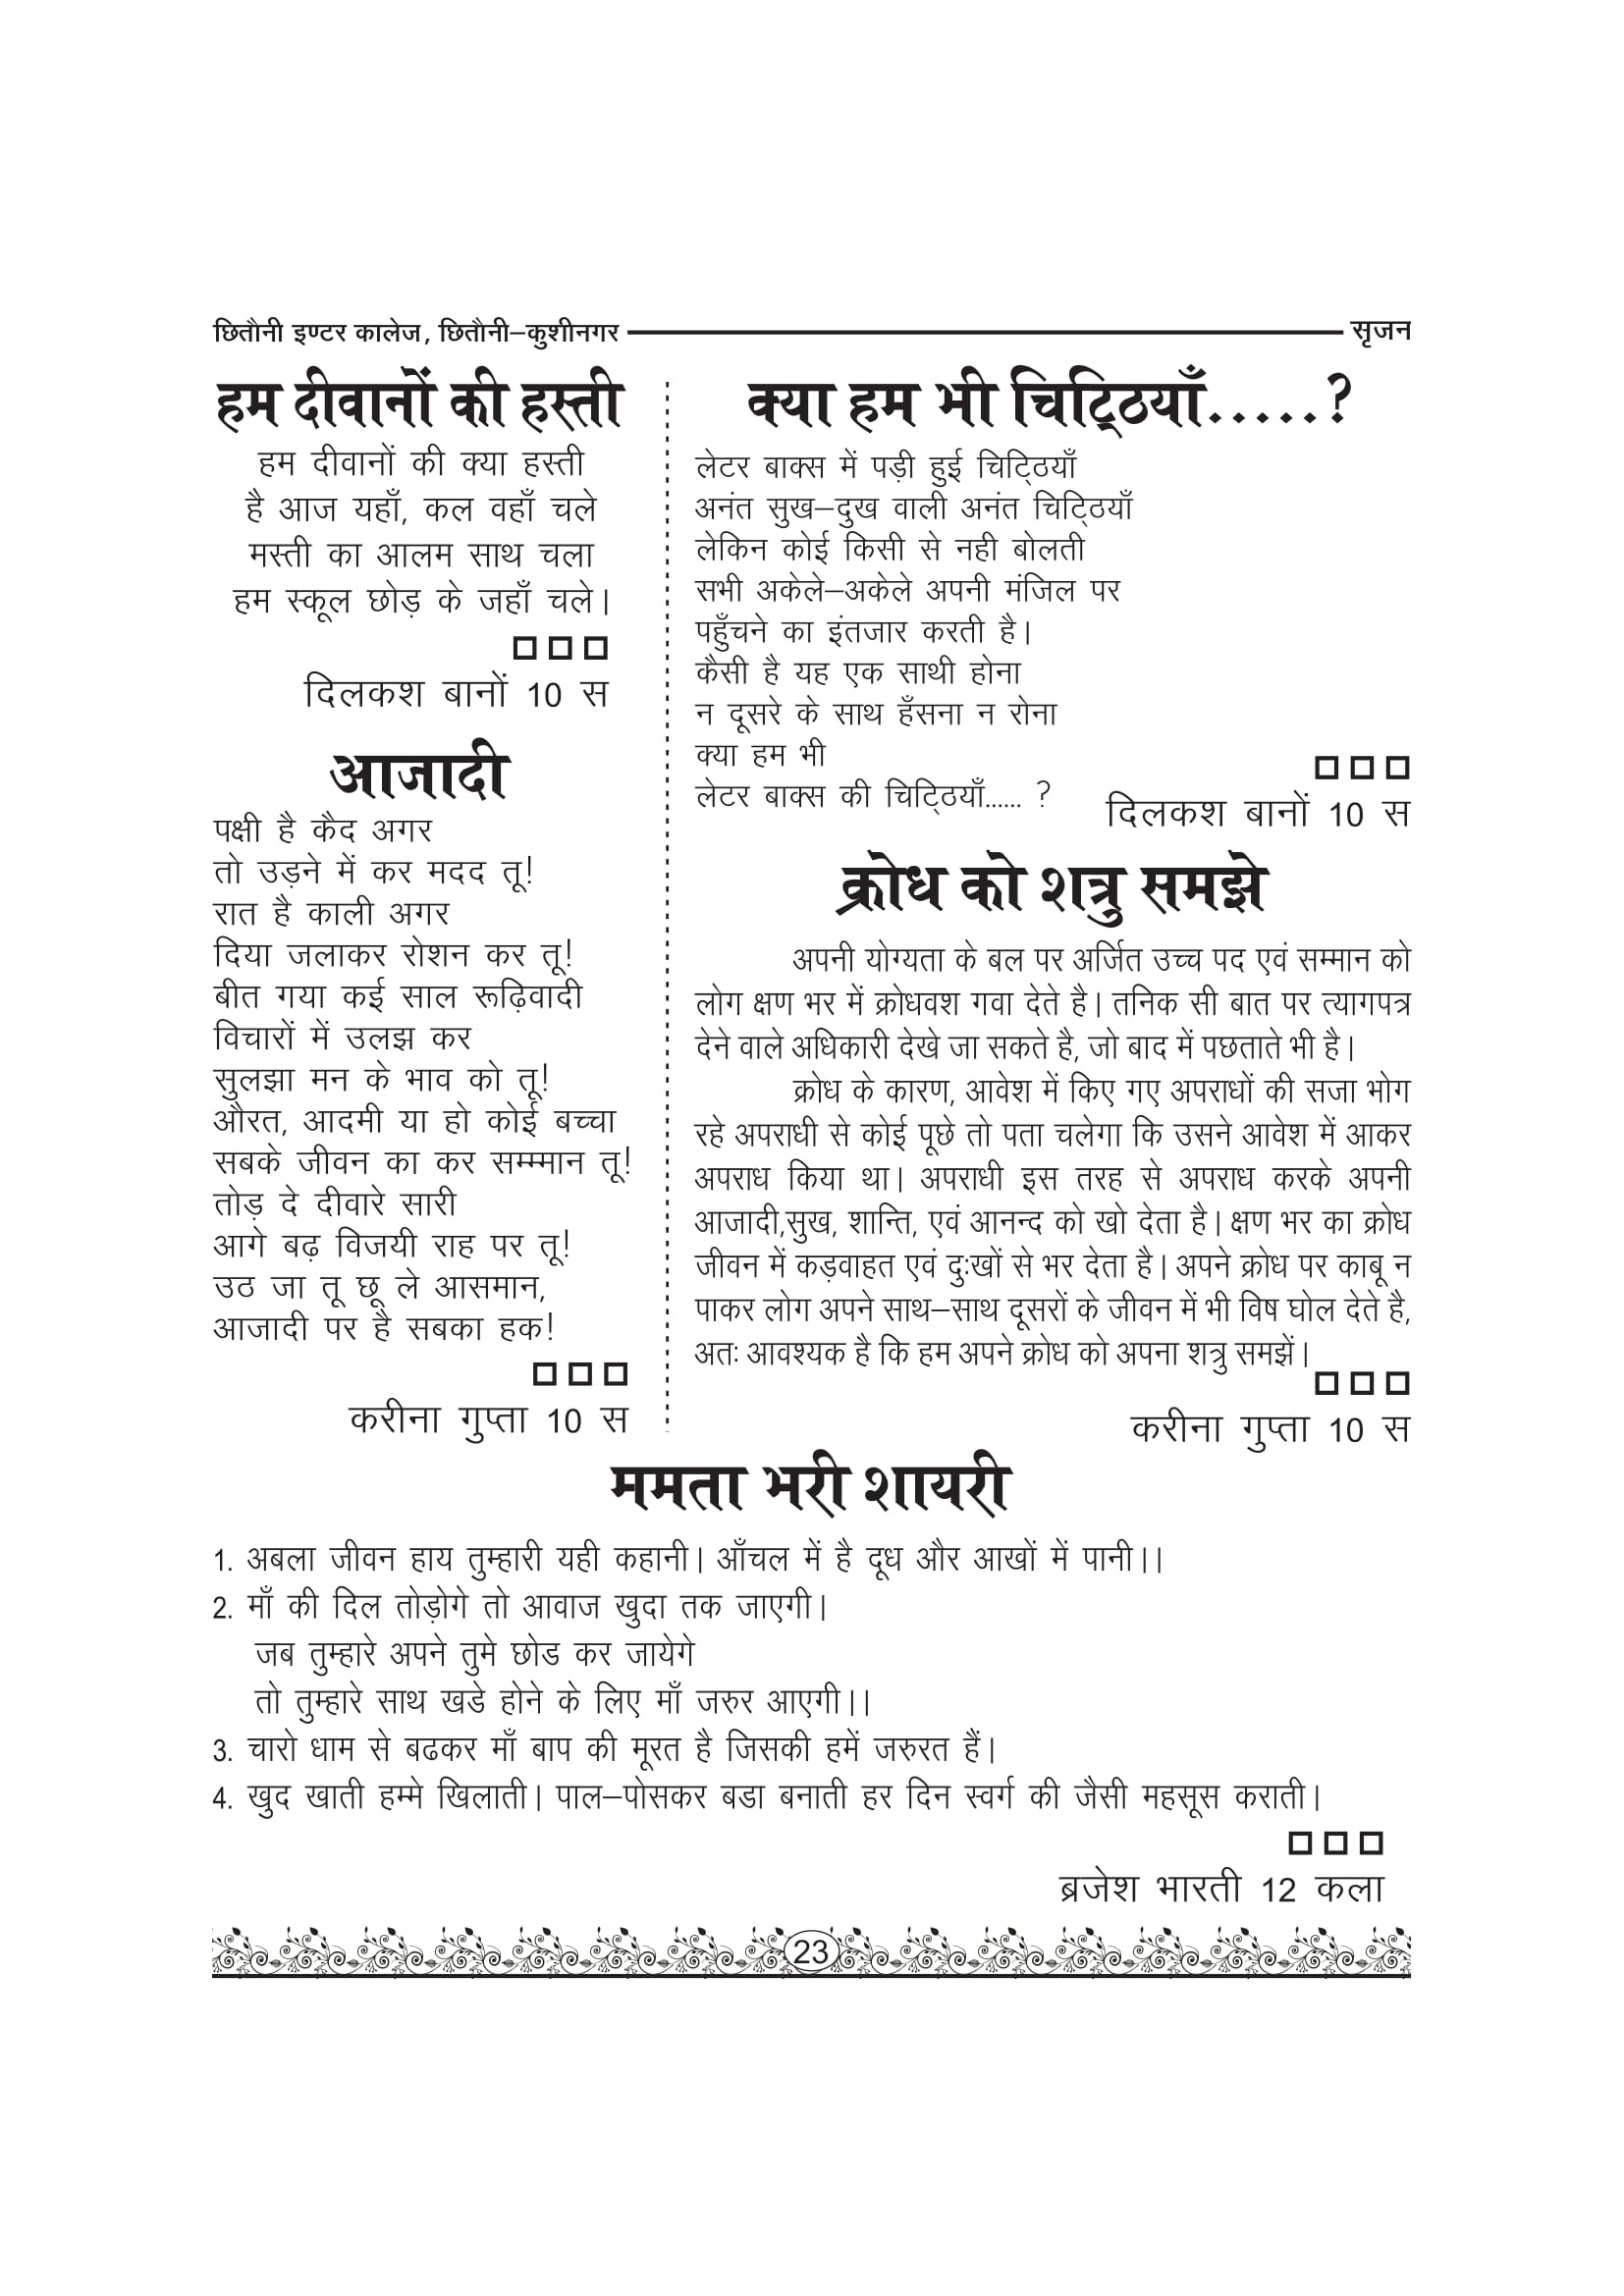 छितौनी इण्टर कालेज, छितौनी–कुशीनगर
सृजन
हम दीवानों की हस्ती
हम दीवानों की क्या हस्ती
है आज यहाँ, कल वहाँ चले
मस्ती का आलम साथ चला
हम स्कूल छोड़ के जहाँ चले।
दिलकश बानों 10 स
आजादी
पक्षी है कैद अगर
तो उड़ने में कर मदद तू!
रात है काली अगर
दिया जलाकर रोशन कर तू!
बीत गया कई साल रूढ़िवादी
विचारों में उलझ कर
सुलझा मन के भाव को तू!
औरत, आदमी या हो कोई बच्चा
सबके जीवन का कर सम्म्मान तू!
तोड़ दे दीवारे सारी
आगे बढ़ विजयी राह पर तू!
उठ जा तू छू ले आसमान,
आजादी पर है सबका हक!
करीना गुप्ता 10 स
क्या हम भी चिट्ठियाँ.....?
लेटर बाक्स में पड़ी हुई चिट्ठियाँ
अनंत सुख–दुख वाली अनंत चिट्ठियाँ
लेकिन कोई किसी से नही बोलती
सभी अकेले–अकेले अपनी मंजिल पर
पहुँचने का इंतजार करती है।
कैसी है यह एक साथी होना
न दूसरे के साथ हँसना न रोना
क्या हम भी
लेटर बाक्स की चिट्ठियाँ...... ?
दिलकश बानों 10 स
क्रोध को शत्रु समझे
अपनी योग्यता के बल पर अर्जित उच्च पद एवं सम्मान को
लोग क्षण भर में क्रोधवश गवा देते है। तनिक सी बात पर त्यागपत्र
देने वाले अधिकारी देखे जा सकते है, जो बाद में पछताते भी है।
क्रोध के कारण, आवेश में किए गए अपराधों की सजा भोग
रहे अपराधी से कोई पूछे तो पता चलेगा कि उसने आवेश में आकर
अपराध किया था। अपराधी इस तरह से अपराध करके अपनी
आजादी,सुख, शान्ति, एवं आनन्द को खो देता है। क्षण भर का क्रोध
जीवन में कड़वाहत एवं दुःखों से भर देता है। अपने क्रोध पर काबू न
पाकर लोग अपने साथ–साथ दूसरों के जीवन में भी विष घोल देते है,
अतः आवश्यक है कि हम अपने क्रोध को अपना शत्रु समझें।
करीना गुप्ता 10 स
ममता भरी शायरी
1. अबला जीवन हाय तुम्हारी यही कहानी। आँचल में है दूध और आखों में पानी।।
2. माँ की दिल तोड़ोगे तो आवाज खुदा तक जाएगी।
जब तुम्हारे अपने तुमे छोड कर जायेगे
तो तुम्हारे साथ खडे होने के लिए माँ जरुर आएगी।।
3. चारो धाम से बढकर माँ बाप की मूरत है जिसकी हमें जरुरत हैं।
4. खुद खाती हम्मे खिलाती। पाल–पोसकर बडा बनाती हर दिन स्वर्ग की जैसी महसूस कराती।
ब्रजेश भारती 12 कला
23